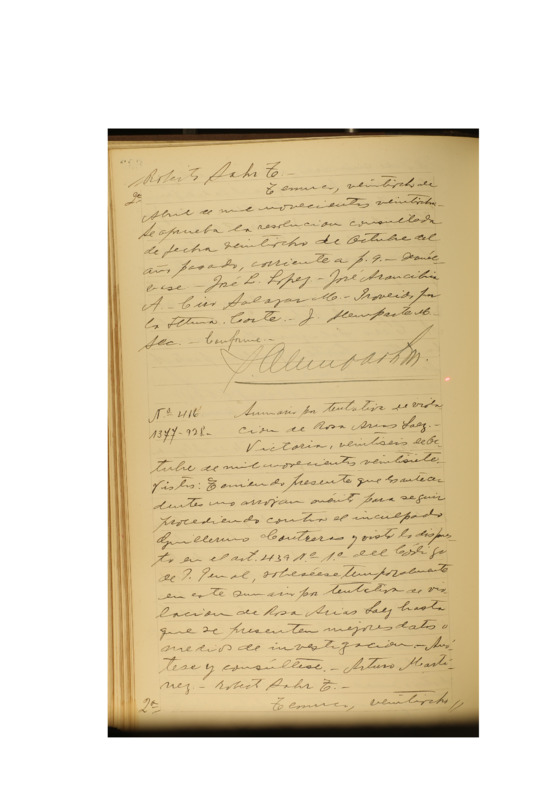 Roberto Sahr F.-
2a. Temuco, veintiocho de
Abril de mil novecientos veintiocho.
Se aprueba la resolucion consultada
de fecha veintiocho de Octubre del
año pasado, corriente a p. 9.- Devuél-
vase - José L. Lopez - José Arancibia
A.- Ciro Salazar M.- Proveido por
la Iltma. Corte.- J. Alemparte M-
Sec.- Conforme.-
No. 416 Sumario por tentativa de viola
1377-928- cion de Rosa Arias Saez-
Victoria, veintiseis de Oc-
tubre de mil novecientos veintisiete.
Vistos: Teniendo presente que los antece-
dentes no arrojan mérito para seguir
procediendo contra el inculpado
Guillermo Contreras y visto lo dispues-
to en el art. 439 No. 1o. del Código
de P. Penal, sobreséese temporalmente
en este sumario por tentativa de vio
lacion de Rosa Arias Saez hasta
que se presenten mejores datos o
medios de investigacion.- Anó-
tese y consúltese.- Arturo Marti-
nez - Robert Sahr F.-
2a Temuco, veintiocho